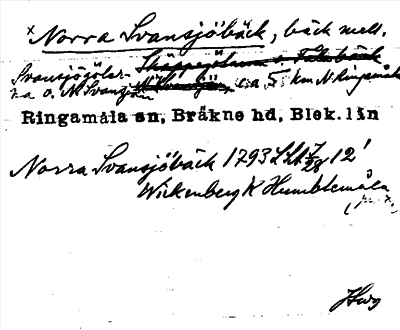 x Norra Svansjöbäck, bäck mell.
Svansjögölar-
na o. N Svansjön ca 5 km N Ringamåla
Ringamåla sn, Bräkne hd, Blek.län
Norra Svansjöbäck 1793 LSA 7/28 12'
Wickenberg K Humblemåla